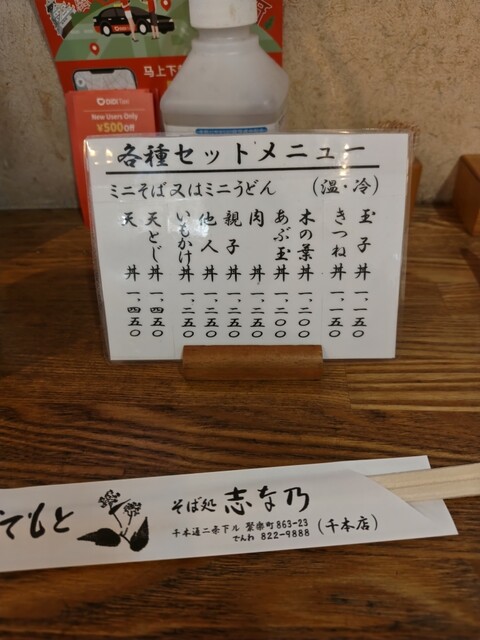 马上下
DiDi Taxi
New Users Only
¥500Off
各種セットメニュー
ミニそば又はミニうどん (温・冷)
玉子丼 一、一五〇
きつね丼 一、一五〇
木の葉丼 一、二〇〇
あぶ玉丼 一、二〇〇
肉丼 一、二五〇
親子丼 一、二五〇
他人丼 一、二五〇
いもかけ丼 一、二五〇
天とじ丼 一、四五〇
天丼 一、四五〇
てもと
そば処 志な乃
千本通二条下ル 聚楽町863-23
でんわ 822-9888 (千本店)